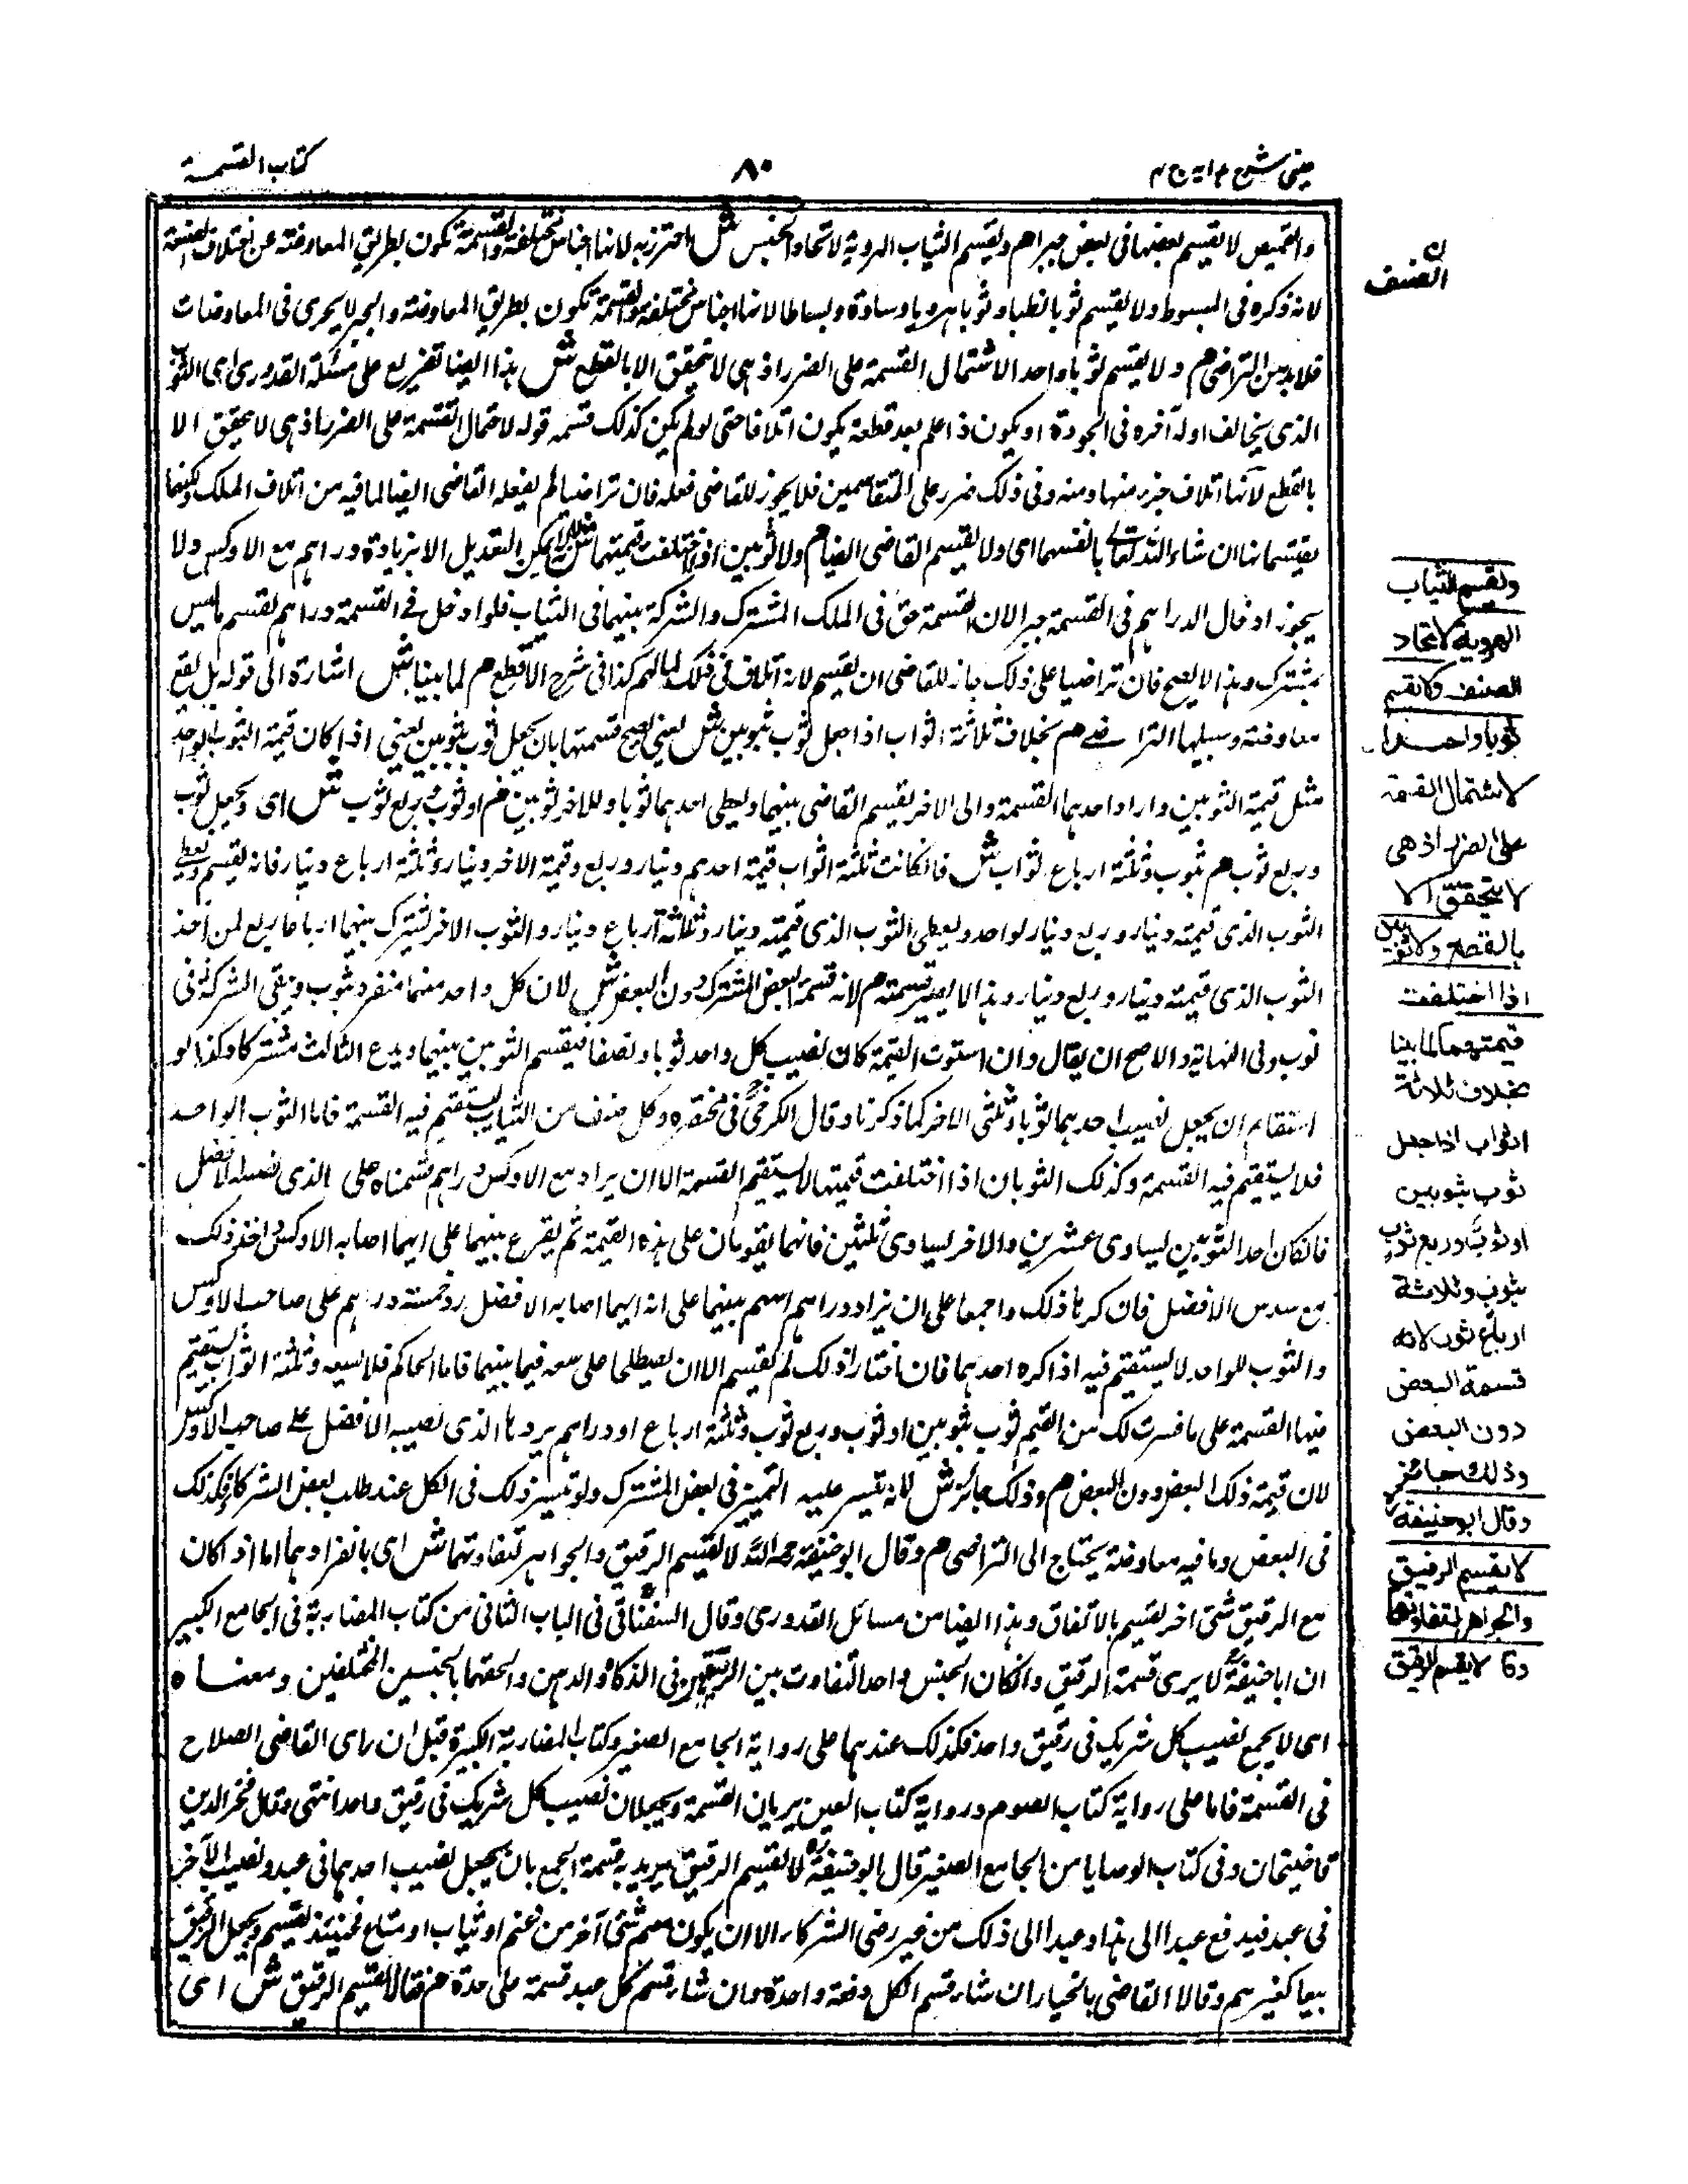 عینی شرح هدایه ج ۴
٨٠
كتاب القسمة
والقميص لا يقسم بعضها فى بعض جبرا هم ويقسم الثياب الهروية لاتحاد الجنس ش احترز به لانها اجناس مختلفة والقسمة تكون بطريق المعاوضة عن اختلاف الصنعة
لانه ذكره فى المبسوط ولا يقسم ثوبا نطبا وثوبا هرويا ووسادة وبساطا لانها اجناس مختلفة والقسمة تكون بطريق المعاوضة والجبر لا يجرى فى المعاوضات
فلا بد من التراضى هم ولا يقسم ثوبا واحدا لاشتمال القسمة على الضرر اذ هى لا تتحقق الا بالقطع ش هذا ايضا تفريع على مسئلة القدورى اى الثوب
الذى يخالف اوله آخره فى الجودة او يكون ذا علم بعد قطعة يكون اتلافا حتى لو لم يكن كذلك قسمه قوله لاحتمال القسمة على الضرر اذ هى لا تتحقق الا
بالقطع لانها اتلاف جزء منها ومنه وفى ذلك ضرر على المتقاسمين فلا يجوز للقاضى فعله فان تراضيا لم يفعله القاضى ايضا لما فيه من اتلاف الملك ولكنهما
يقتسمانها ان شاء الله تعالى بانفسهما اى ولا يقسم القاضى ايضا هم ولا ثوبين اذا اختلفت قيمتهما ش لانه لا يمكن التعديل الا بزيادة دراهم مع الاوكس ولا
يجوز ادخال الدراهم فى القسمة جبرا لان القسمة حق فى الملك المشترك والشركة بينهما فى الثياب فلو ادخل فى القسمة دراهم لقسم ما ليس
بمشترك وهذا لا يصح فان تراضيا على ذلك جاز للقاضى ان يقسم لانه اتلاف فى ذلك لمالهم كذا فى شرح الاقطع هم لما بينا ش اشارة الى قوله بل يقع
معاوضة وسبيلها التراضى هم بخلاف ثلاثة اثواب اذا جعل ثوب بثوبين ش يعنى يصح قسمتها بان يجعل ثوب بثوبين يعنى اذا كان قيمة الثوب الواحد
مثل قيمة الثوبين واراد احدهما القسمة وابى الاخر يقسم القاضى بينهما ويعطى احدهما ثوبا وللاخر ثوبين هم او ثوب وربع ثوب ش اى ويجعل ثوب
وربع ثوب هم بثوب وثلثة ارباع ثواب ش فان كانت ثلثة اثواب قيمة احدهم دينار وربع وقيمة الاخر دينار وثلثة ارباع دينار فانه يقسم ويعطى
الثوب الذى قيمته دينار وربع دينار لواحد ويعطى الثوب الذى قيمته دينار وثلاثة ارباع دينار والثوب الاخر لشترك بينهما ارباعا ربع لمن اخذ
الثوب الذى قيمته دينار وربع دينار وهذا لا يعتبر قسمته هم لانه قسمة البعض المشترك دون البعض ش لان كل واحد منهما منفرد بثوب وتبقى الشركة فى
ثوب وفى النهاية والاصح ان يقال وان استوت القيمة كان نصيب كل واحد ثوبا ونصفا فيقسم الثوبين بينهما ويدع الثالث مشتركا وكذا لو
استقام ان يجعل نصيب احدهما ثوبا وثلثى الاخر كما ذكرنا وقال الكرخى فى مختصره وكل صنف من الثياب يستقيم فيه القسمة فاما الثوب الواحد
فلا يستقيم فيه القسمة وكذلك الثوبان اذا اختلفت قيمتها لا يستقيم القسمة الا ان يراد مع الاوكس دراهم قسمناه على الذى نصيبه الافضل
فان كان احد الثوبين يساوى عشرين والاخر يساوى ثلثين فانهما يقومان على هذه القيمة ثم يقرع بينهما على ايهما اصابه الاوكس اخذ ذلك
مع سدس الافضل فان كرها ذلك واجمعا على ان يزاد دراهم اسهم بينهما على انه ايهما اصابه الافضل رد خمسة دراهم على صاحب الاوكس
والثوب للواحد لا يستقيم فيه اذا كره احدهما فان اختارا ذلك لم يقسم الا ان يصطلحا على سعه فيما بينهما فاما الحاكم فلا يسعه وثلثة اثواب يستقيم
فيها القسمة على ما فسرت لك من القيم ثوب بثوبين او ثوب وربع ثوب وثلثة ارباع او دراهم يردها الذى نصيبه الافضل على صاحب الاوكس
لان قيمة ذلك البعض دون البعض هم وذلك جائز ش لانه تيسر عليه التمييز فى بعض المشترك ولو تيسر ذلك فى الكل عند طلب بعض الشركاء فكذلك
فى البعض وما فيه معاوضة يحتاج الى التراضى هم وقال ابو حنيفة رحمه الله لا يقسم الرقيق والجواهر لتفاوتهما ش اى بانفرادهما اما اذا كان
مع الرقيق شئ اخر يقسم بالاتفاق وهذا ايضا من مسائل القدورى وقال السغناقى فى الباب الثانى من كتاب المضاربة فى الجامع الكبير
ان ابا حنيفة لا يرى قسمة الرقيق وان كان الجنس واحدا لتفاوت بين الرقيقين فى الذكاء والذهن والحقهما بالجنسين المختلفين ومعناه
اى لا يجمع نصيب كل شريك فى رقيق واحد فكذلك عندهما على رواية الجامع الصغير وكتاب المضاربة الكبيرة قبل ان راى القاضى الصلاح
فى القسمة فاما على رواية كتاب الصوم ورواية كتاب العين يريان القسمة ويجعلان نصيب كل شريك فى رقيق واحد انتهى وقال فخر الدين
قاضيخان وفى كتاب الوصايا من الجامع الصغير قال ابو حنيفة لا يقسم الرقيق يريد به قسمة الجمع بان يجعل نصيب احدهما فى عبد ونصيب الآخر
فى عبد فيدفع عبدا الى هذا وعبدا الى ذلك من غير رضى الشركاء الا ان يكون معهم شئ آخر من غنم او ثياب او متاع فحينئذ يقسم ويجعل الرقيق
بيعا كغيرهم وقالا القاضى بالخيار ان شاء قسم الكل دفعة واحدة وان شاء قسم كل عبد قسمة على حدة هم فقالا يقسم الرقيق ش اى
ن
الصنف
ويقسم الثياب
الهروية لاتحاد
الصنف ولا يقسم
ثوبا واحدا
لاشتمال القسمة
على الضرر اذ هى
لا يتحقق الا
بالقطع ولا ثوبين
اذا اختلفت
قيمتهما لما بينا
بخلاف ثلاثة
اثواب اذا جعل
ثوب بثوبين
او ثوب وربع ثوب
بثوب وثلاثة
ارباع ثوب لانه
قسمة البعض
دون البعض
وذلك جائز
وقال ابو حنيفة
لا يقسم الرقيق
والجواهر لتفاوتها
وقا لا يقسم الرقيق